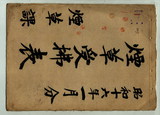 昭和十六年一月分
煙草受拂表
煙草課